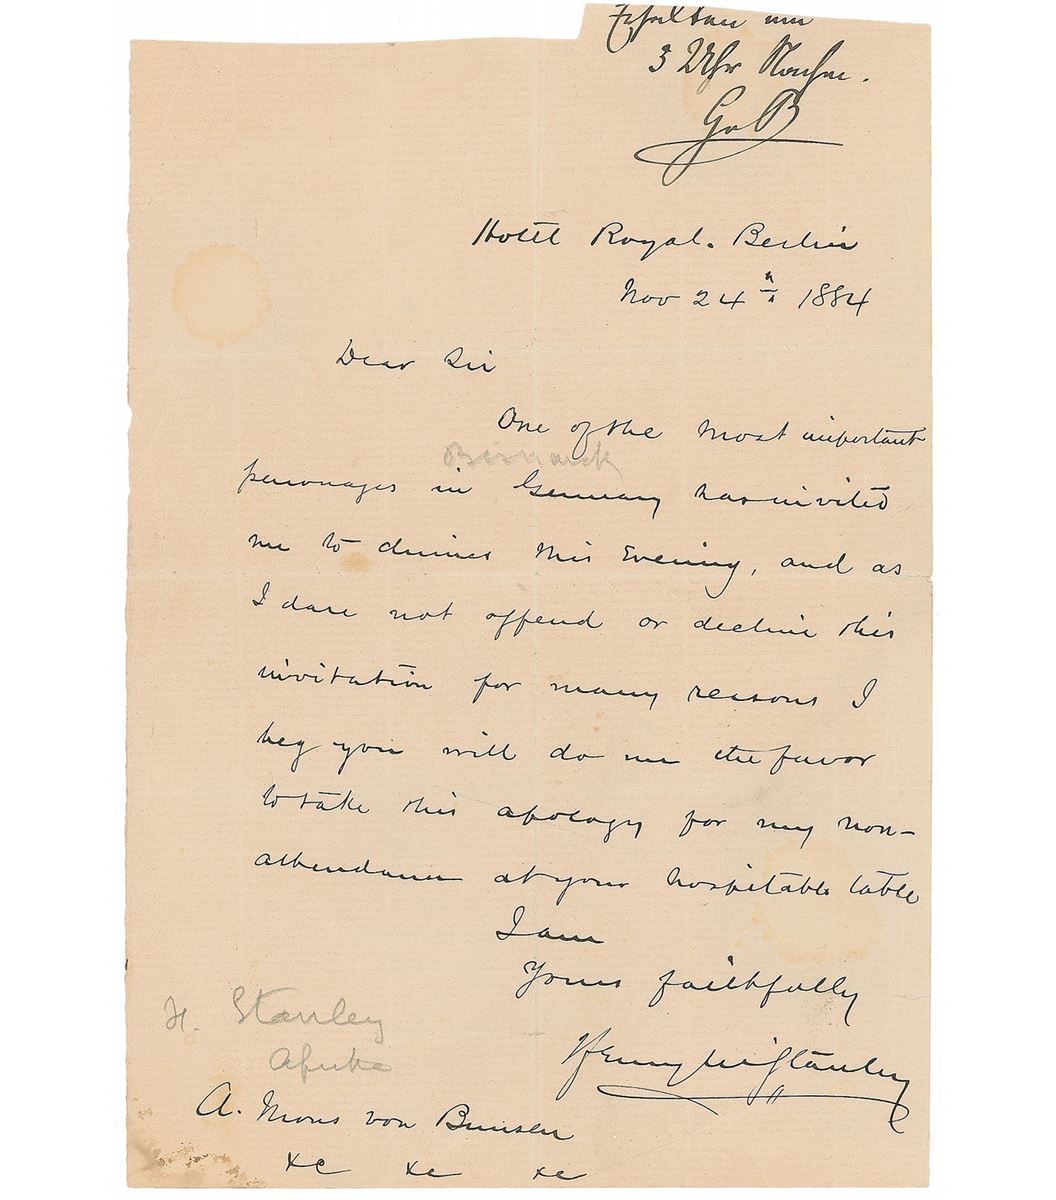 Erhalten um
3 Uhr Nachm.
GvB
Hotel Royal. Berlin
Nov 24th 1884
Dear Sir
One of the most important
Bismarck
personages in Germany has invited
me to dinner this Evening, and as
I dare not offend or decline this
invitation for many reasons I
beg you will do me the favor
to take this apology for my non-
attendance at your hospitable table
I am
Yours faithfully
Henry M Stanley
H. Stanley
Afrika
A. Mons von Bunsen
xc xc xc